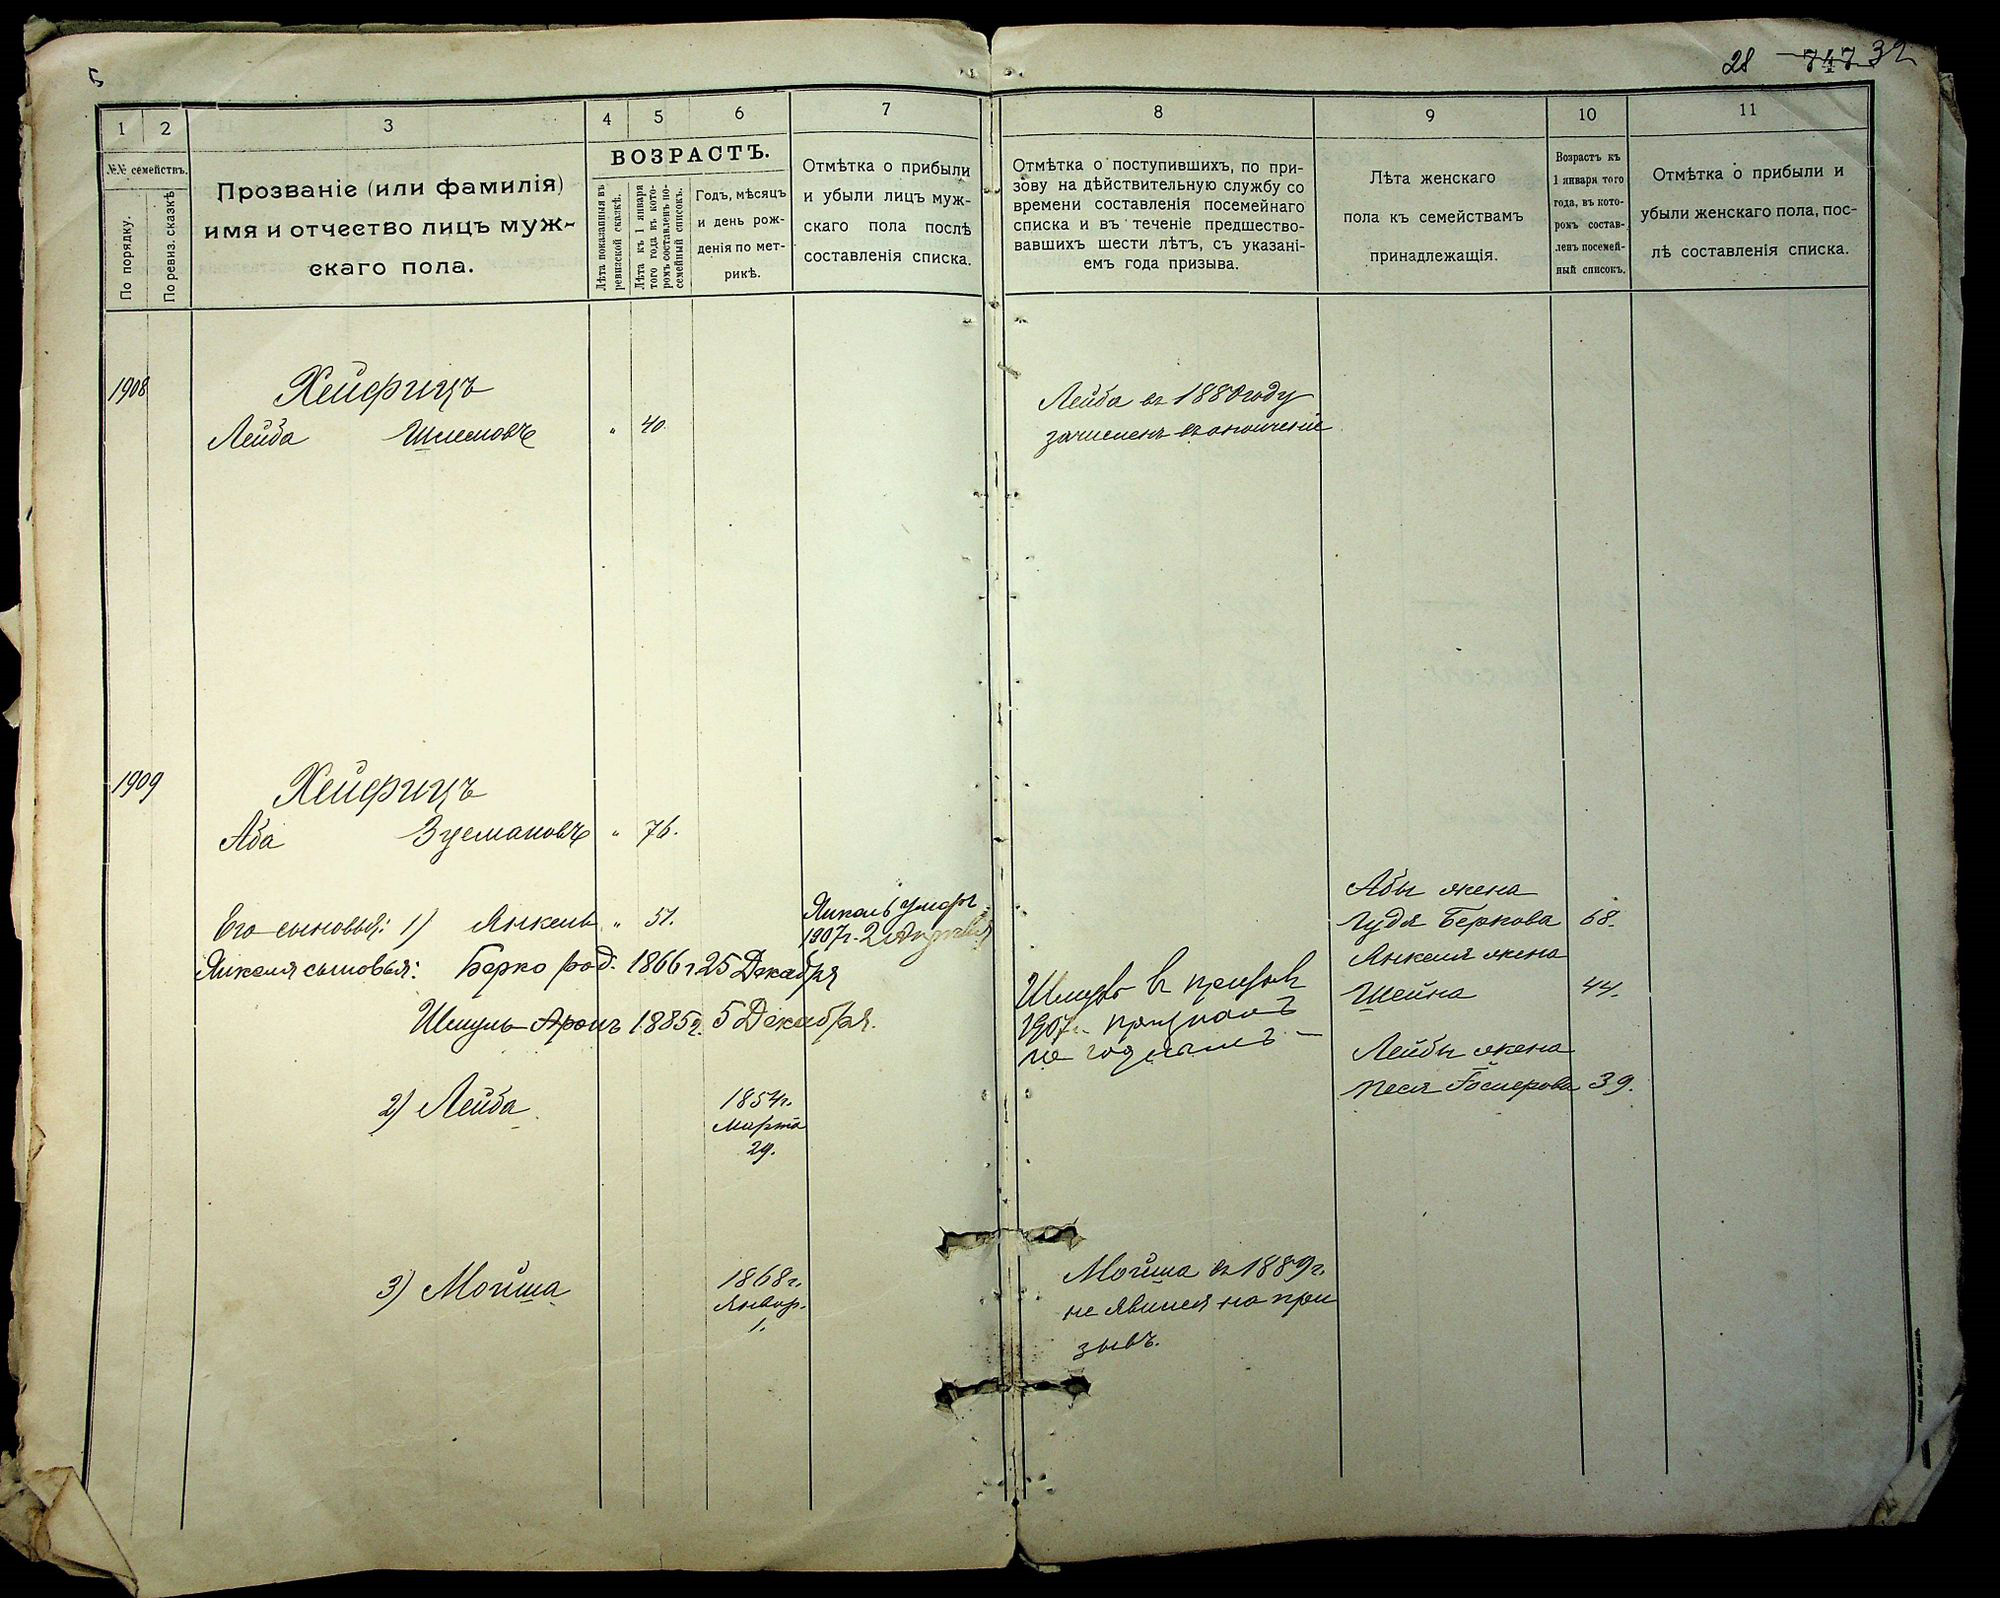 28 747 32
1 2 3 4 5 6 7 8 9 10 11
№№ семействъ.
По порядку.
По ревиз. сказкѣ
Прозваніе (или фамилія)
имя и отчество лицъ муж-
скаго пола.
ВОЗРАСТЪ.
Лѣта показанныя въ
ревизской сказкѣ.
Лѣта къ 1 января
того года въ кото-
ромъ составленъ по-
семейный списокъ.
Годъ, мѣсяцъ
и день рож-
денія по мет-
рикѣ.
Отмѣтка о прибыли
и убыли лицъ муж-
скаго пола послѣ
составленія списка.
Отмѣтка о поступившихъ, по при-
зову на дѣйствительную службу со
времени составленія посемейнаго
списка и въ теченіе предшество-
вавшихъ шести лѣтъ, съ указані-
емъ года призыва.
Лѣта женскаго
пола къ семействамъ
принадлежащія.
Возрастъ къ
1 января того
года, въ кото-
ромъ состав-
ленъ посемей-
ный списокъ.
Отмѣтка о прибыли и
убыли женскаго пола, пос-
лѣ составленія списка.
1908 Хейфицъ
Лейба Шлемовъ " 40.
Лейба въ 1880 году
зачисленъ въ ополченіе
1909 Хейфицъ
Аба Зусмановъ " 76.
Его сыновья: 1) Янкель " 51.
Янкель умеръ
1907г. 2
Янкеля сыновья: Берко род. 1866 г 25 Декабря
Шмуль Аронъ 1885г. 5 Декабря.
2) Лейба
1854г.
Марта
29.
3) Мойша
1868г.
Январ.
1.
Шмуль в призыв
1907г. признанъ
не годнымъ
Мойша въ 1889г.
не явился на при
зывъ.
Абы жена
Гудя Беркова 68.
Янкеля жена
Шейна 44.
Лейбы жена
Песя 39.